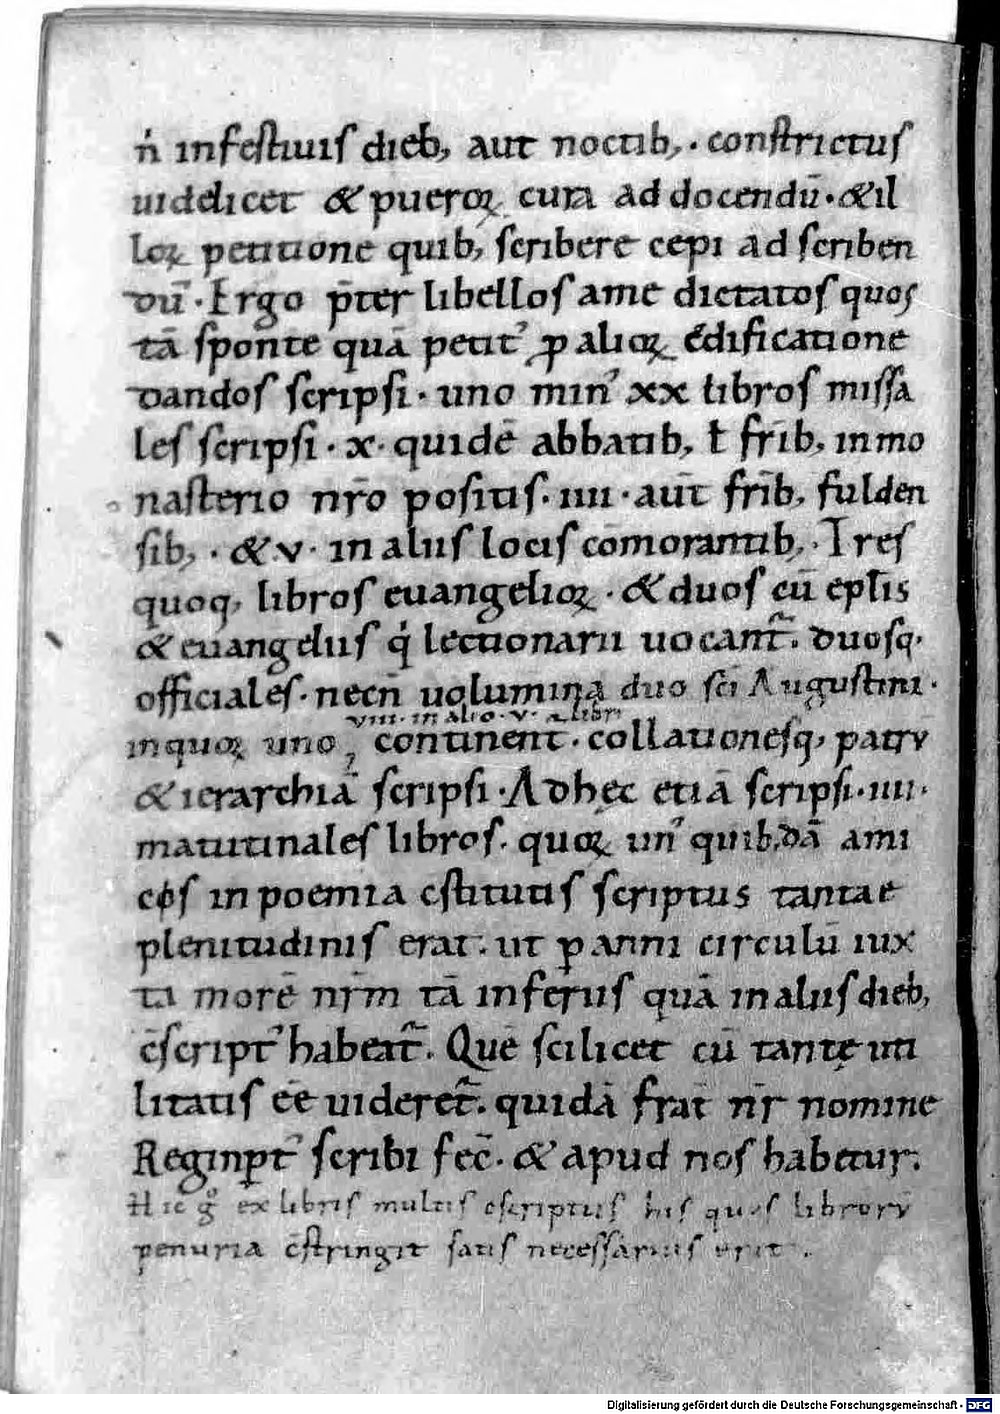 n̄ infestiuis dieb; aut noctib;. constrictus
uidelicet & pueroꝝ cura ad docendū. & il
loꝝ petitione quib; scribere cepi ad scriben
dū. Ergo p̄ter libellos a me dictatos quos
tā sponte quā petit' ꝓ alioꝝ ędificatione
dandos scripsi. uno min' xx libros missa
les scripsi. x. quidē abbatib; ł fr̄ib; in mo
nasterio nr̄o positis. iiii. aut̄ fr̄ib; fulden
sib;. & v. in aliis locis cōmorantib;. Tres
quoq; libros euangelioꝝ. & duos cū epl̄is
& euangeliis q̇ lectionarii uocant̃. duosq.
officiales. necn̄ uolumina duo sc̄i Augustini.
viii. in alio. v.
in quoꝝ uno continent̃. collationesq; patrū
& ierarchiā scripsi. Ad hęc etiā scripsi. iiii.
matutinales libros. quoꝝ un' quib;dā ami
cos in poemia cstitutis scriptus tantae
plenitudinis erat. ut ꝑ anni circulū iux
ta morē nr̄m tā in feriis quā in aliis dieb;
c̄script' habeat̃. Que scilicet cū tantę uti
litatis eē uideret̃. quidā frat̄ nr̄ nomine
Reginꝑt' scribi fec̄. & apud nos habetur.
Hic g° ex libris multis cscriptus his quos librorū
penuria c̄stringit satis necessarius erit.
Digitalisierung gefördert durch die Deutsche Forschungsgemeinschaft - DFG